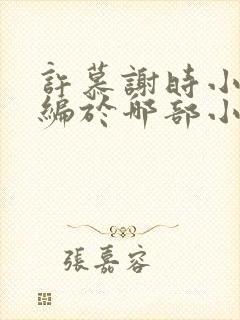 許慕謝時小
編於那部小
張嘉容